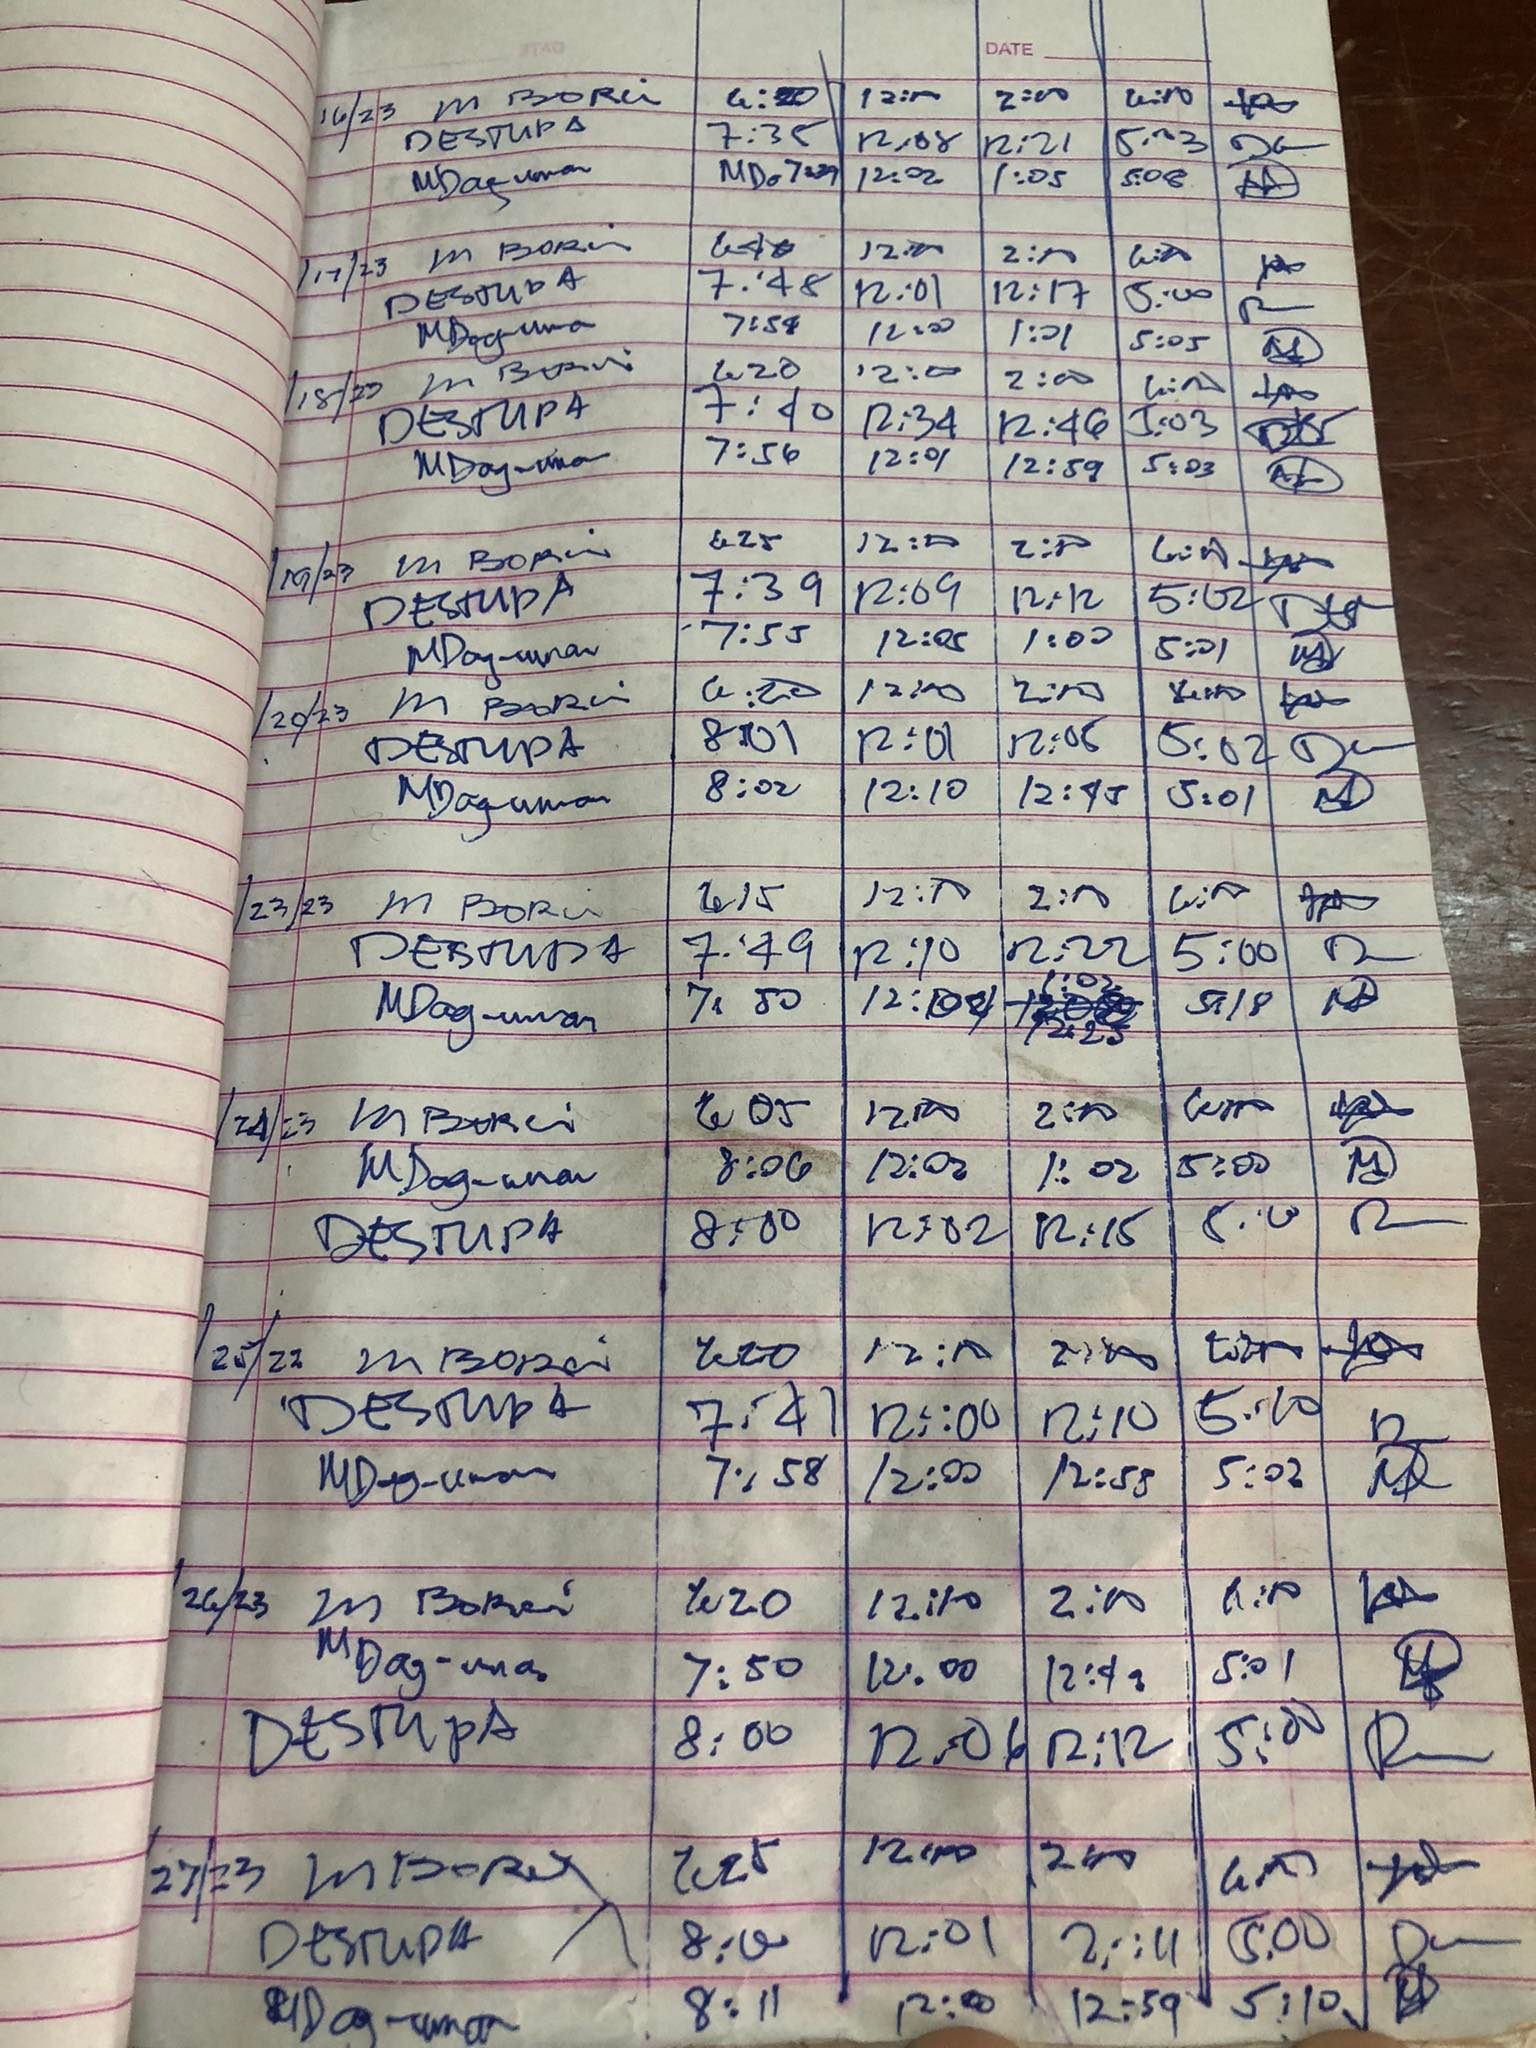 DATE
16/23 M BORCI 6:20 12:00 2:00 6:00
DESTUPA 7:35 12:08 12:21 5:03
MDag-uman 12:02 1:05 5:08
/17/23 M BORCI 12:00 2:00 6:00
DESTUPA 7:48 12:01 12:17 5:00
MDag-uman 7:54 12:00 1:01 5:05
/18/23 M BORCI 620 12:00 2:00 6:00
DESTUPA 7:40 12:34 12:46 5:03
MDag-uman 7:56 12:01 12:59 5:03
/19/23 M BORCI 625 12:00 2:00 6:00
DESTUPA 7:39 12:09 12:12 5:02
MDag-uman 7:55 12:05 1:00 5:01
/20/23 M BORCI 6:20 12:00 2:00 6:00
DESTUPA 8:01 12:01 12:06 5:02
MDag-uman 8:02 12:10 12:45 5:01
/23/23 M BORCI 615 12:00 2:00 6:00
DESTUPA 7:49 12:10 12:22 5:00
MDag-uman 7:50 1:02 12:25 5:18
/24/23 M BORCI 605 12:00 2:00 6:00
MDag-uman 8:06 12:02 1:02 5:00
DESTUPA 8:00 12:02 12:15
/25/22 M BORCI 620 12:00 2:00
DESTUPA 7:41 12:00 12:10 5:10
MDag-uman 7:58 12:00 12:58 5:02
/26/23 M BORCI 620 12:00 2:00 6:00
MDag-uman 7:50 12:00 5:01
DESTUPA 8:00 12:06 12:12 5:00
/27/23 M BORCI 625 12:00 2:00 6:00
DESTUPA 12:01 2:11 5:00
MDag-uman 8:11 12:00 12:59 5:10